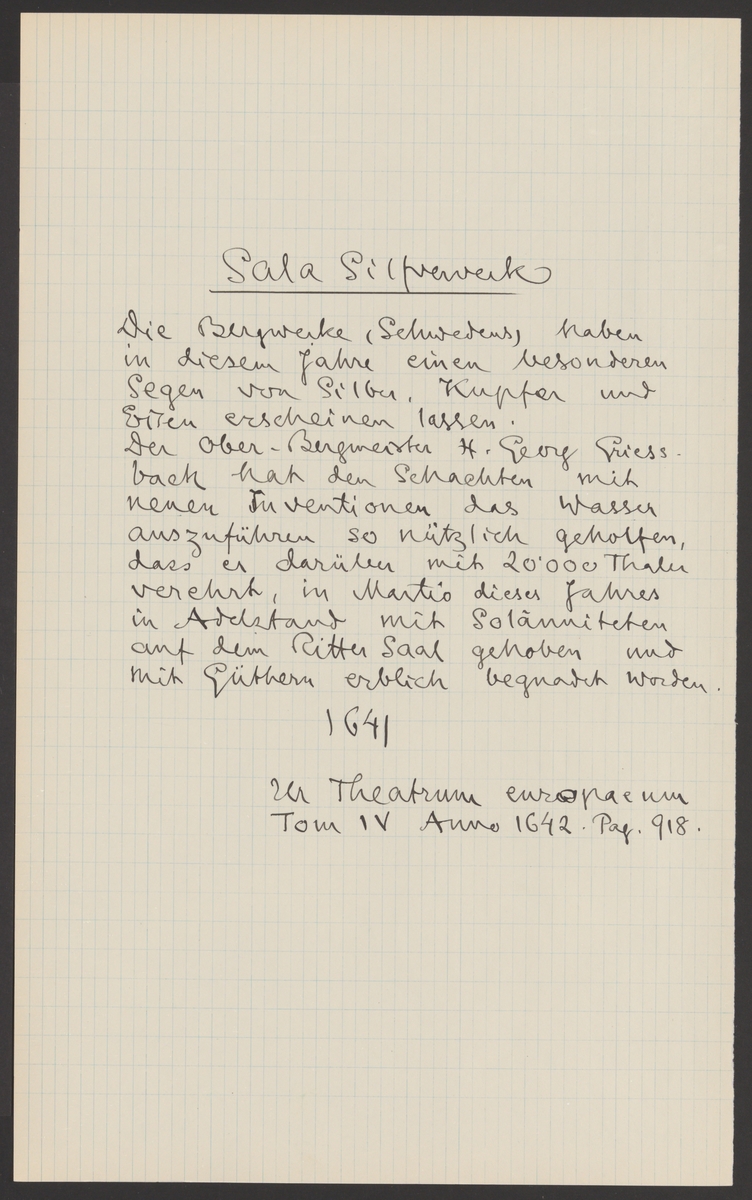 Sala Silfververk
Die Bergwerke (Schwedens) haben
in diesem Jahre einen besonderen
Segen von Silber, Kupfer und
Eisen erscheinen lassen.
Der Ober-Bergmeister H. Georg Griess-
bach hat den Schachten mit
neuen Inventionen das Wasser
auszuführen so nützlich geholfen,
dass er darüber mit 20'000 Thaler
verehrt, in Martio dieses Jahres
in Adelstand mit Solänniteten
auf dem Ritter Saal gehoben und
mit Güthern erblich begnadet worden.
1641
Ur Theatrum europaeum
Tom IV Anno 1642. Pag. 918.